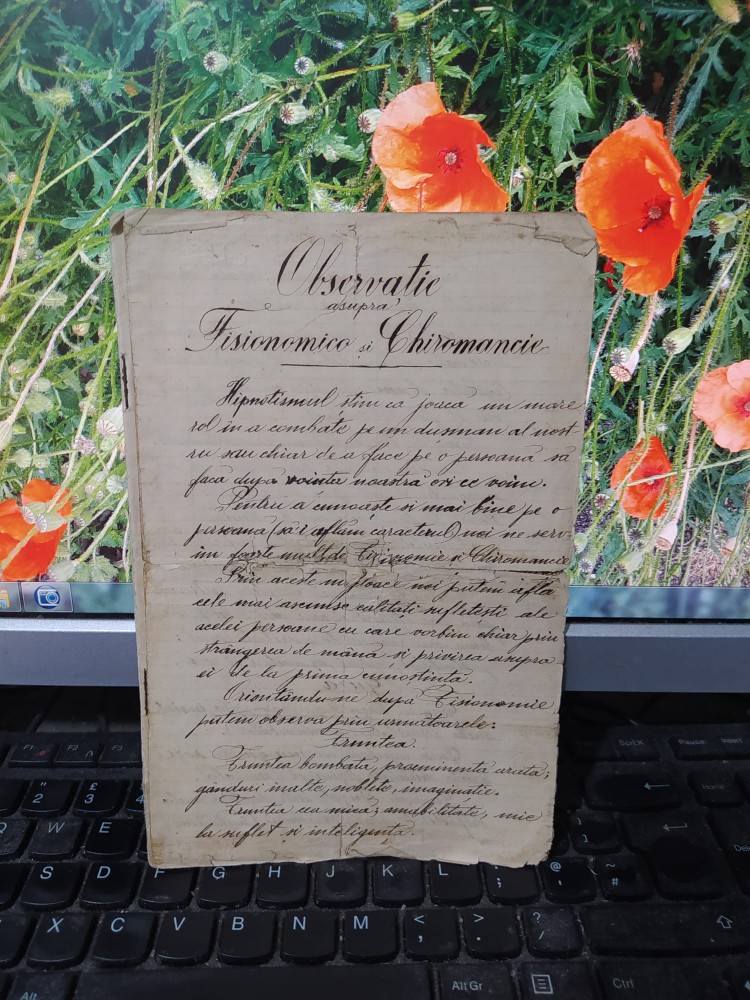 Observatie
asupra
Fisionomico si Chiromancie
Hipnotismul stim ca joacă un mare
rol in a combate pe un dusman al nost-
ru sau chiar de a face pe o persoana să
facă după vointa noastră ori ce voim.
Pentru a cunoaște si mai bine pe o
persoana (să i aflăm caracterul) noi ne serv-
im foarte mult de Fisionomie si Chiromancie
Prin aceste mijloace noi putem afla
cele mai ascunse calităti sufletești ale
acelei persoane cu care vorbim chiar prin
strângerea de mână si privirea asupra
ei de la prima cunostință.
Orientându-ne după Fisionomie
putem observa prin urmatoarele:
Fruntea.
Fruntea bombata, proeminenta arata;
gânduri inalte, noblete, imaginatie.
Fruntea cea mică; amabilitate, mic
la suflet și inteligență.
F1
F2
F3
ScrLK
Pause
Insert
"
2
£
3
4
Home
Q
W
E
Dele
S
D
F
G
H
J
K
L
:
;
@
'
~
#
X
C
V
B
N
M
<
,
>
.
?
/
Alt
Alt Gr
Ctrl